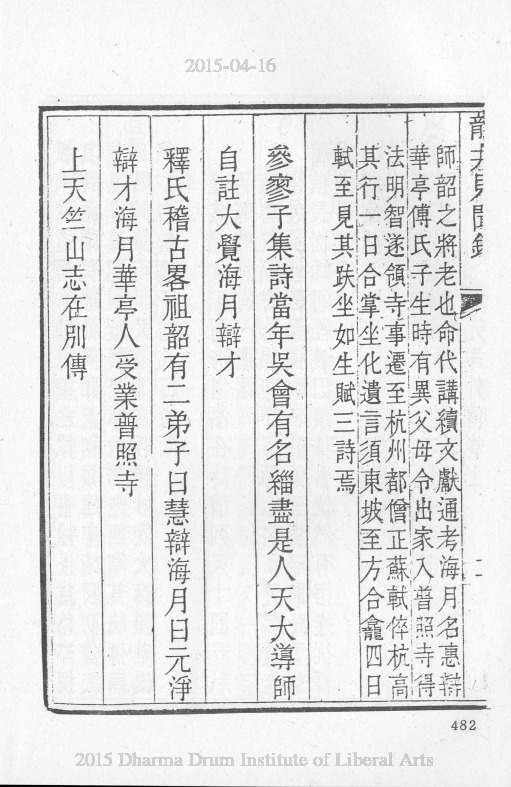 2015-04-16
龍井見聞錄
師韶之將老也命代講續文獻通考海月名惠辯
華亭傅氏子生時有異父母令出家入普照寺得
法明智遂領寺事遷至杭州都僧正蘇軾倅杭高
其行一日合掌坐化遺言須東坡至方合龕四日
軾至見其趺坐如生賦三詩焉
參寥子集詩當年吳會有名緇盡是人天大導師
自註大覺海月辯才
釋氏稽古畧祖韶有二弟子曰慧辯海月曰元淨
辯才海月華亭人受業普照寺
上天竺山志在別傳
482
2015 Dharma Drum Institute of Liberal Arts